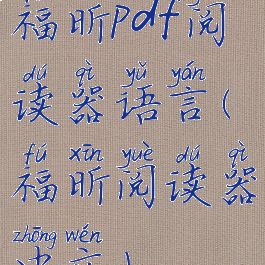 福昕pdf阅
dú qì yǔ yán
读器语言(
fú xīn yuè dú qì
福昕阅读器
zhōng wén
中文)